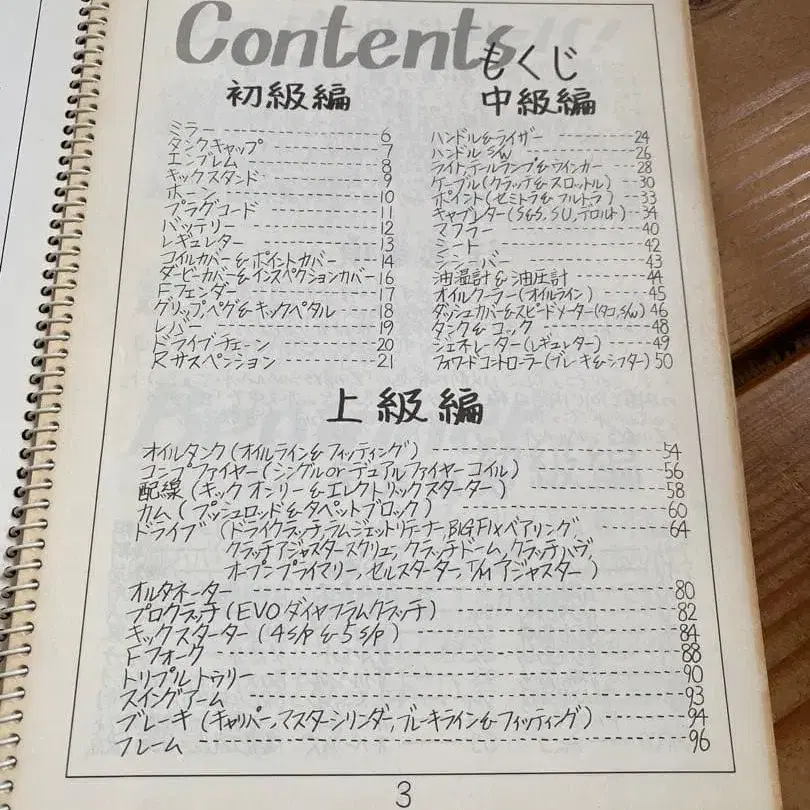 Contents
もくじ
初級編
ミラー 6
タンクキャップ 7
エンブレム 8
キックスタンド 9
ホーン 10
プラグコード 11
バッテリー 12
レギュレター 13
コイルカバー&ポイントカバー 14
ダービーカバー&インスペクションカバー 16
Fフェンダー 17
グリップ、ペグ&キックペタル 18
レバー 19
ドライブチェーン 20
Rサスペンション 21
中級編
ハンドル&ライザー 24
ハンドルS/W 26
ライト、テールランプ&ウインカー 28
ケーブル(クラッチ&スロットル) 30
ポイント(セミトラ&フルトラ) 33
キャブレター(S&S, SU, デロルト) 34
マフラー 40
シート 42
シシーバー 43
油温計&油圧計 44
オイルクーラー(オイルライン) 45
ダッシュカバー&スピードメーター(タコ, S/W) 46
タンク&コック 48
ジェネレーター(レギュレター) 49
フォワードコントローラー(ブレーキ&シフター) 50
上級編
オイルタンク(オイルライン&フィッティング) 54
コンプファイヤー(シングルorデュアルファイヤーコイル) 56
配線(キックオンリー&エレクトリックスターター) 58
カム(プッシュロッド&タペットブロック) 60
ドライブ(ドライクラッチ, ラムジェットリテーナー, BIG FIXベアリング 64
クラッチアジャスタースクリュエ, クラッチドーム, クラッチハヴ,
オープンプライマリー, セルスターター, 1/4"アジャスター)
オルタネーター 80
プロクラッチ(EVOダイヤフラムクラッチ) 82
キックスターター(4s/p&5s/p) 84
Fフォーク 88
トリプルトゥリー 90
スイングアーム 93
ブレーキ(キャリパー, マスターシリンダー, ブレーキライン&フィッティング) 94
フレーム 96
3